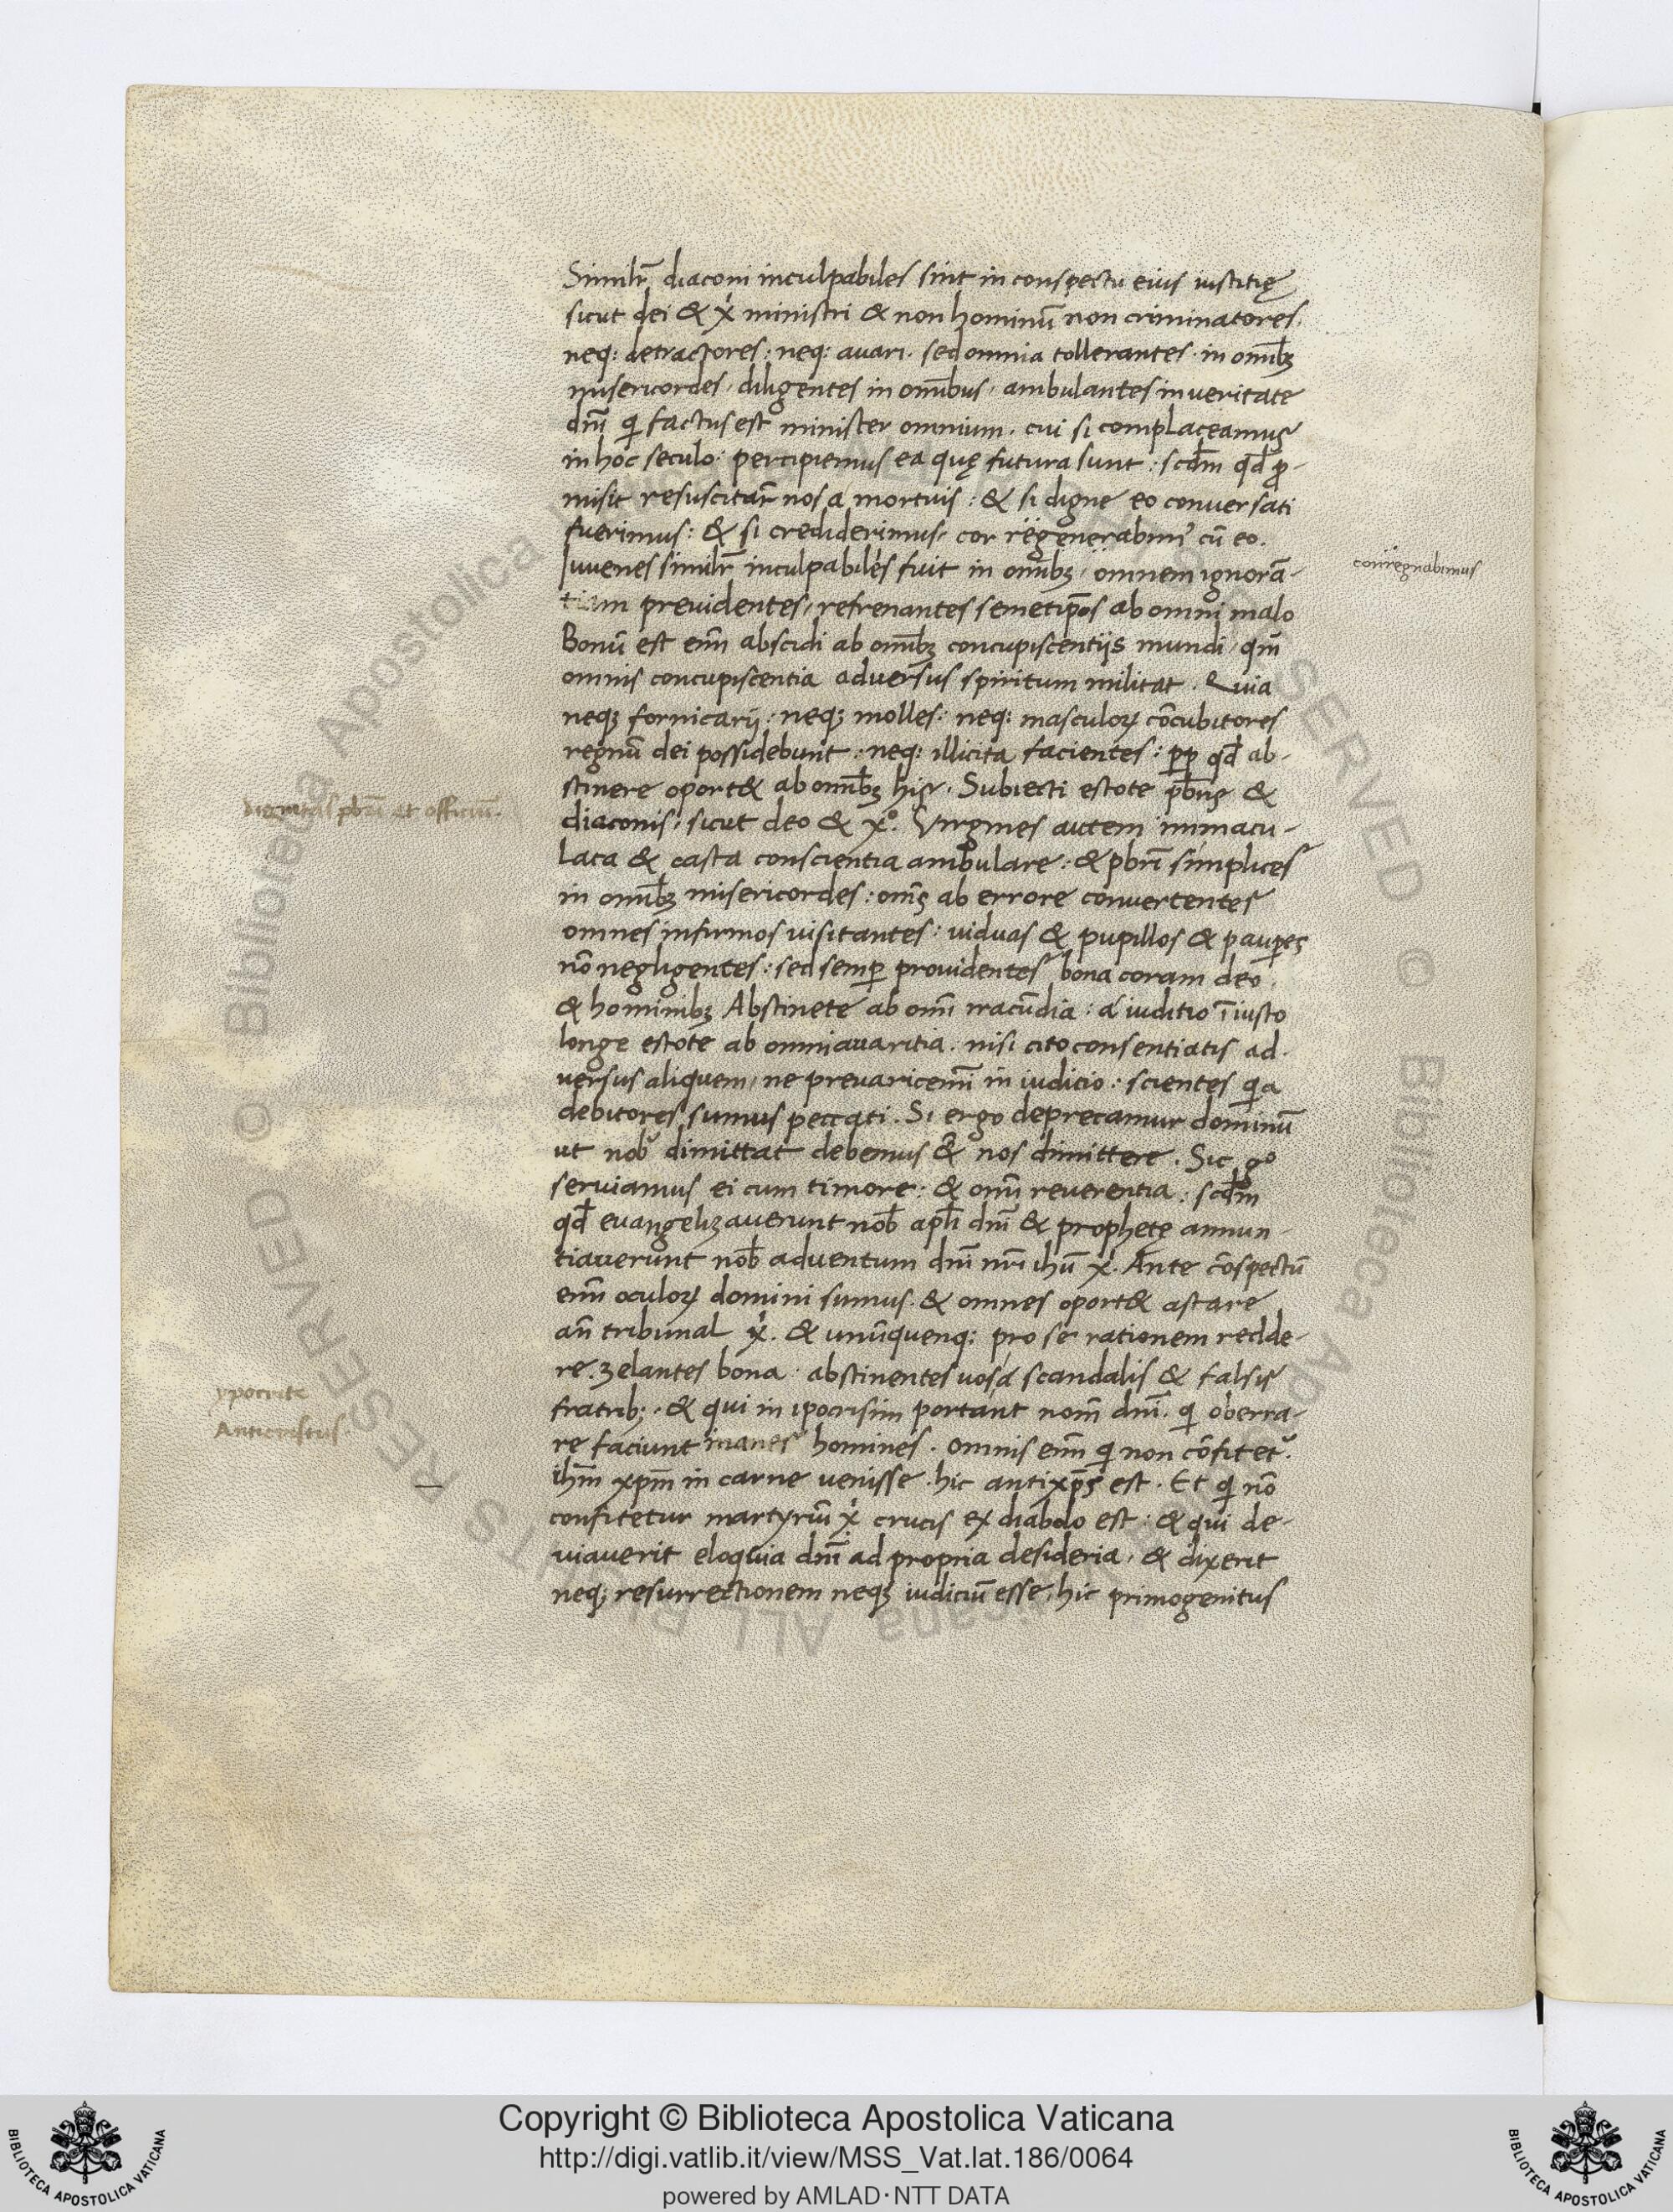 Similr̄ diaconi inculpabiles sint in conspectu eius iustitię
sicut dei & xi ministri & non hominū non criminatores.
neq: detractores: neq: auari. sed omnia tollerantes. in om̄ibꝫ
misericordes, diligentes in om̄ibus, ambulantes in ueritate
dn̄i qi factus est minister omnium. cui si complaceamus
in hoc seculo: percipiemus ea quę futura sunt: scd̄m qd̄ ꝓ-
misit resuscitar̄ nos a mortuis: & si digne eo conuersati
fuerimus: & si crediderimus, cor regenerabim' cū eo.
Iuuenes similr̄ inculpabiles fuit in om̄ibꝫ, omnem ignorā-
tiam preuidentes, refrenantes semetip̄os ab omni malo
Bonū est em̄ abscidi ab om̄ibꝫ concupiscentijs mundi, qm̄
omnis concupiscentia aduersus spiritum militat. Quia
neqꝫ fornicarij: neqꝫ molles: neq: masculoꝝ cōcubitores
regnū dei possidebunt: neq: illicita facientes: ꝓp qd̄ ab-
stinere oport& ab om̄ibꝫ his. Subiecti estote pb̄ris &
diaconis, sicut deo & xo. Virgines autem immacu-
lata & casta conscientia ambulare: & pbr̄i simplices
in om̄ibꝫ misericordes: om̄s ab errore conuertentes
omnes infirmos uisitantes: uiduas & pupillos & pauꝑes
nō negligentes: sed semꝑ prouidentes bona coram deo.
& hominibꝫ Abstinete ab om̄i iracūdia: a iuditio īiusto
longe estote ab omni auaritia. nisi cito consentiatis ad-
uersus aliquem, ne preuaricem̄i in iudicio: scientes qia
debitores sumus peccati. Si ergo deprecamur dominū
ut nob' dimittat debemus & nos dimittere. Sic go
seruiamus ei cum timore: & om̄i reuerentia: scd̄m
qd̄ euangelizauerunt nob̄ apl̄i dn̄i & prophetę annun-
tiauerunt nob̄ aduentum dn̄i nr̄i ihū x. Ante cōspectū
em̄ oculoꝝ domini sumus. & omnes oport& astare
an̄ tribunal xi. & unūquenq: pro se rationem redde-
re. zelantes bona. abstinentes uos a scandalis & falsis
fratribꝫ. & qui in ipocrisim portant nom̄ dn̄i. qi oberra-
re faciunt inanes homines. omnis em̄ qi non cōfitet'.
ihm̄ xpm̄ in carne uenisse. hic antixp̄s est. Et qi nō
confitetur martyriū xi crucis ex diabolo est: & qui de-
uiauerit eloquia dn̄i ad propria desideria, & dixerit
neqꝫ resurrectionem neqꝫ iudiciū esse, hic primogenitus
corregnabimus
dignitas pbr̄i et officiū.
ypocrite
Anticristus
Copyright © Biblioteca Apostolica Vaticana
http://digi.vatlib.it/view/MSS_Vat.lat.186/0064
powered by AMLAD·NTT DATA
BIBLIOTECA APOSTOLICA VATICANA
BIBLIOTECA APOSTOLICA VATICANA